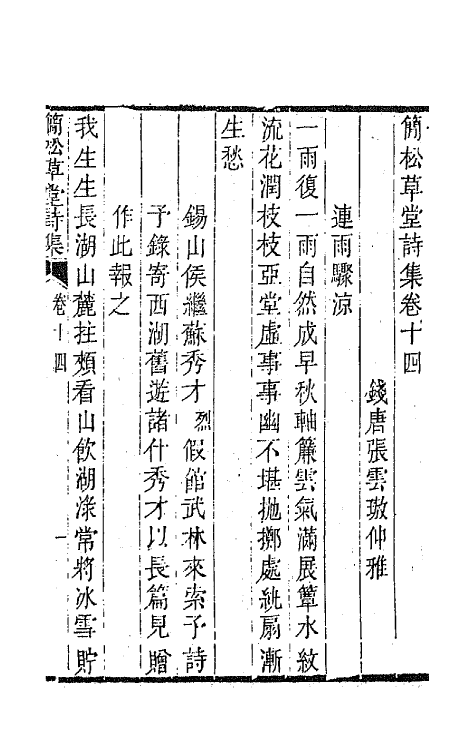 簡松草堂詩集卷十四
錢唐張雲璈仲雅
連雨驟涼
一雨復一雨自然成早秋軸簾雲氣滿展簟水紋
流花潤枝枝亞堂虛事事幽不堪拋擲處紈扇漸
生愁
錫山侯繼蘇秀才烈假館武林來索予詩
予錄寄西湖舊遊諸什秀才以長篇見贈
作此報之
我生生長湖山麓拄頰看山飲湖渌常將冰雪貯
簡松草堂詩集
卷十四
一